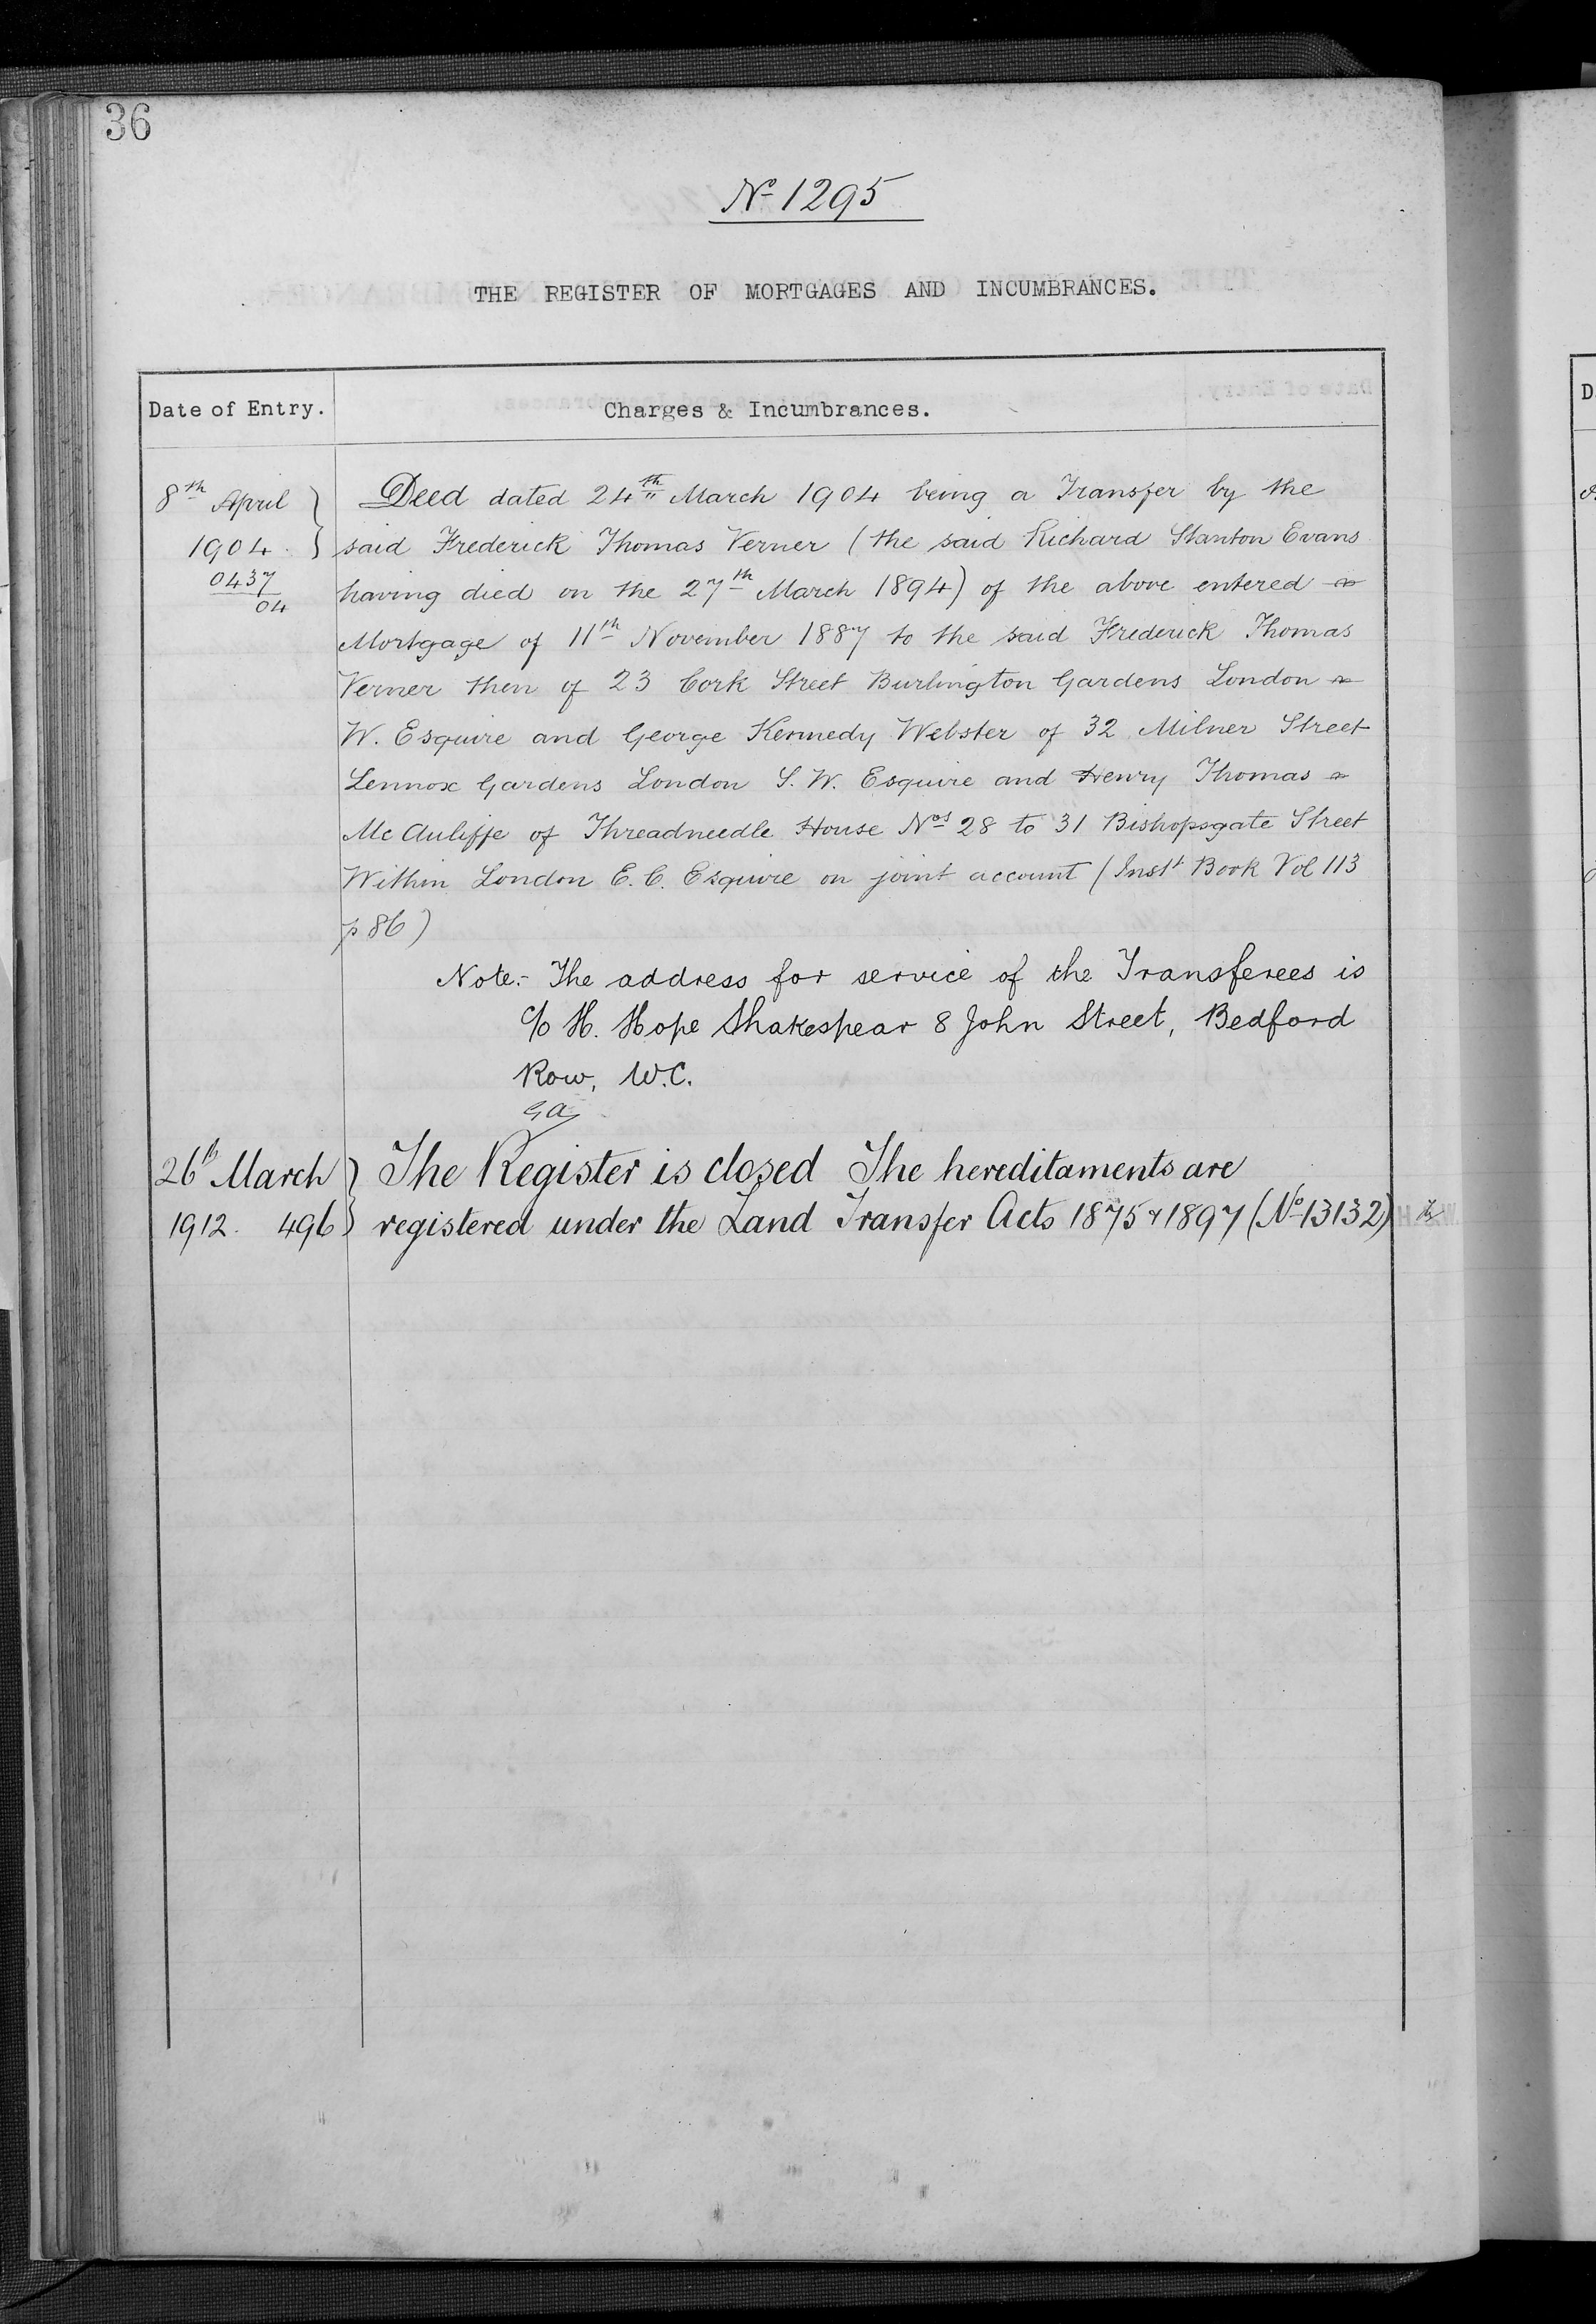 36
No 1295
THE REGISTER OF MORTGAGES AND INCUMBRANCES.
Date of Entry.
Charges & Incumbrances.
8th April
1904.
0437
04
Deed dated 24th March 1904 being a Transfer by the
said Frederick Thomas Verner (the said Richard Stanton Evans
having died on the 27th March 1894) of the above entered
Mortgage of 11th November 1887 to the said Frederick Thomas
Verner then of 23 Cork Street Burlington Gardens London
W. Esquire and George Kennedy Webster of 32 Milner Street
Lennox Gardens London S. W. Esquire and Henry Thomas
Mc Auliffe of Threadneedle House Nos 28 to 31 Bishopsgate Street
Within London E. C. Esquire on joint account (Instt Book Vol 113
p 86)
Note:- The address for service of the Transferees is
c/o H. Hope Shakespear 8 John Street, Bedford
Row, W.C.
26th March
1912. 496
The Register is closed The hereditaments are
registered under the Land Transfer Acts 1875 & 1897 (No 13132)